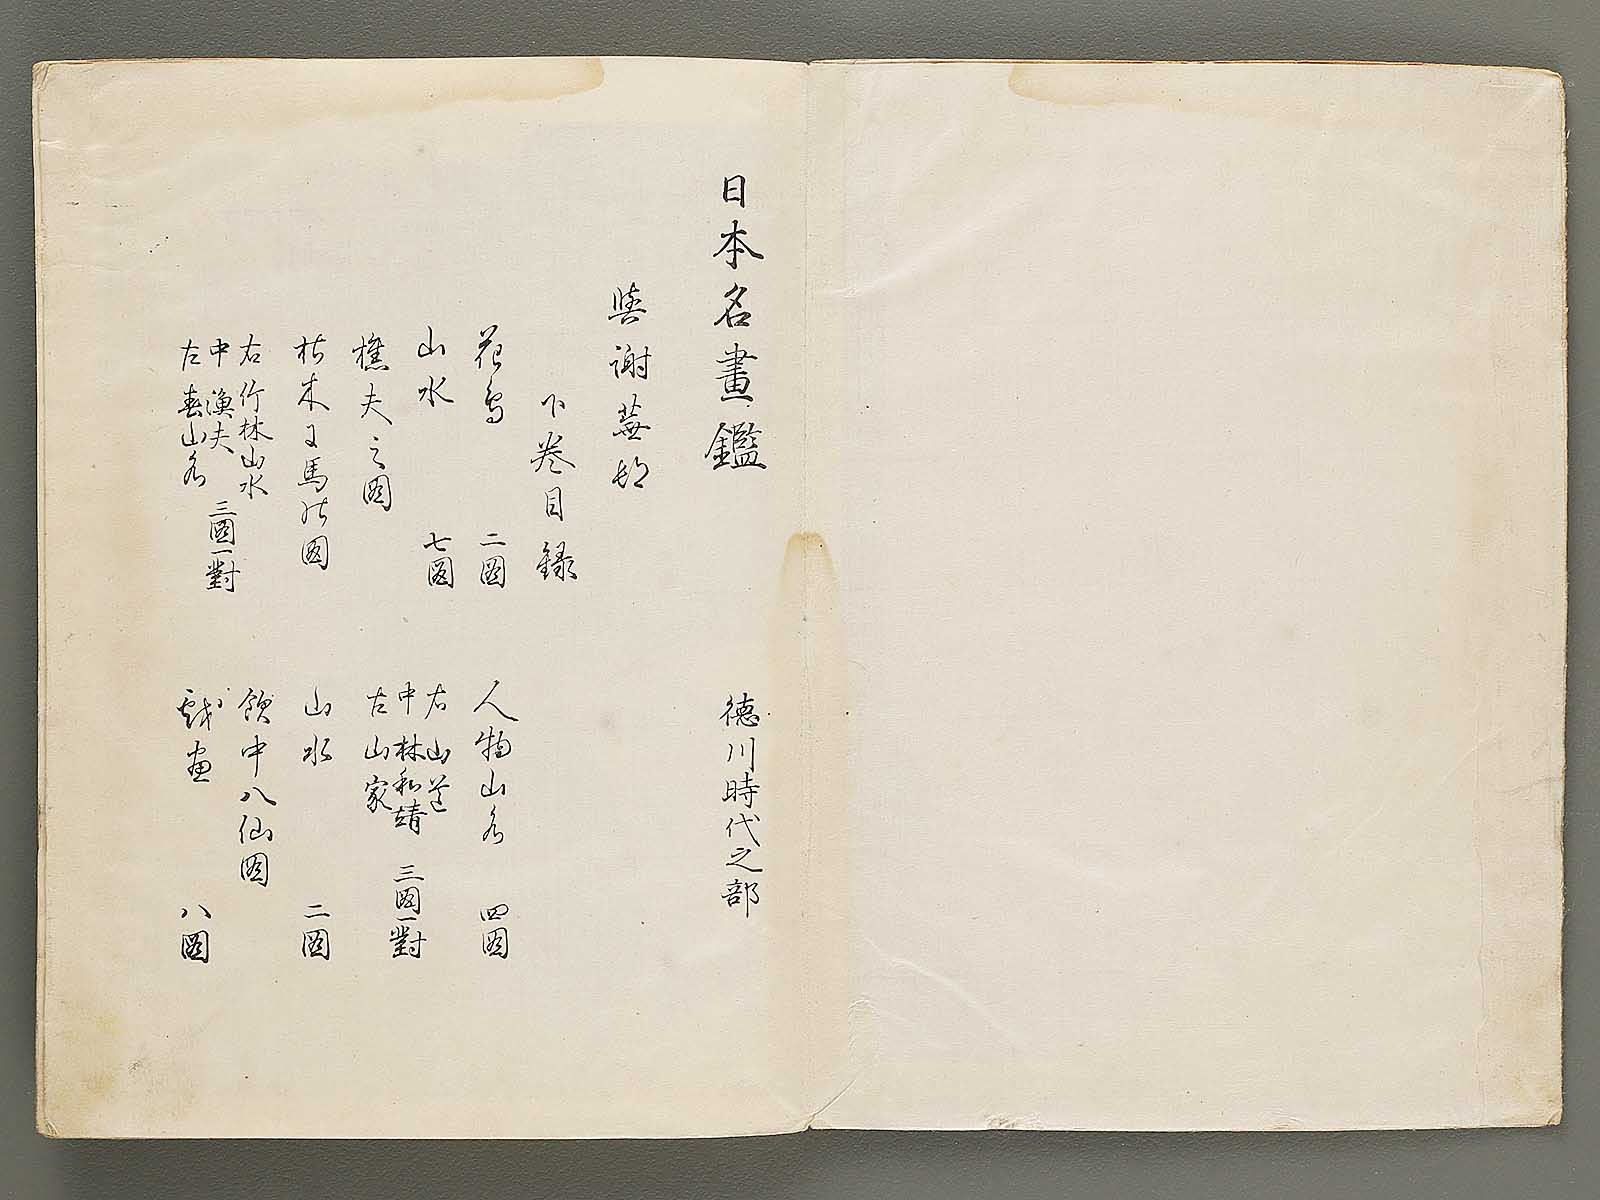 日本名畫鑑
徳川時代之部
與謝蕪邨
下卷目録
花鳥 二図
山水 七図
樵夫之図
枯木ニ馬の図
右 竹林山水
中 漁夫
左 春山水
三図一對
人物山水 四図
右 山道
中 林和靖
左 山家
三図一對
山水 二図
飲中八仙図
戯画 八図